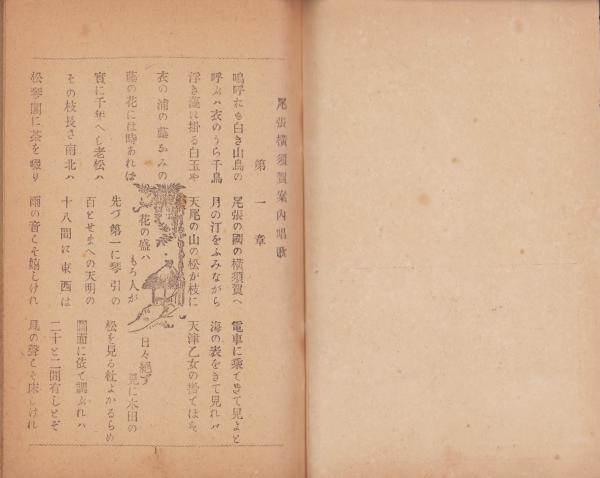 尾張横須賀案内唱歌
第一章
鳴呼れも白き山鳥の 尾張の國の横須賀へ 電車に乘てきて見よと
呼ぶハ衣のうら千鳥 月の汀をふみながら 海の表をきて見れハ
浮き藻に掛る白玉や 天尾の山の松が枝に 天津乙女の
衣の浦の藤なみの 花の盛ハもろ人が 日々絕ず
藤の花には時あれば 見に木田の
實に千年へし老松ハ 先づ第一に琴引の 松を見る社よかるらめ
その枝長さ南北ハ 百とせまへの天明の 圖面に依て調ぶれハ
十八間に東西は 二十と二間有しとぞ
松琴閣に茶を啜り 雨の音こそ嬉しけれ 風の聲こそ床しけれ
1